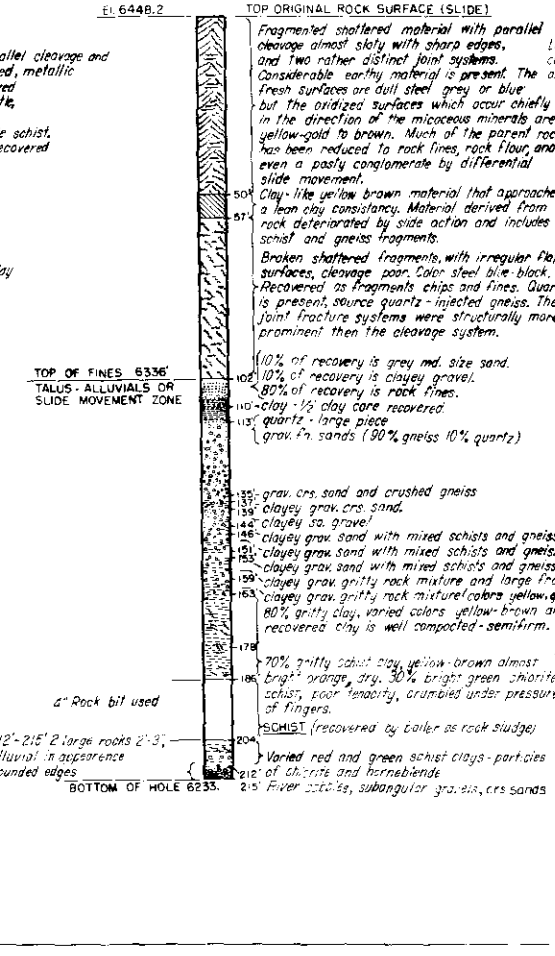 El. 6448.2
TOP ORIGINAL ROCK SURFACE (SLIDE)
allel cleavage and
ed, metallic
red
tle,
e schist.
ecovered
lay
Fragmented shattered material with parallel
cleavage almost slaty with sharp edges,
and two rather distinct joint systems.
Considerable earthy material is present. The
fresh surfaces are dull steel grey or blue
but the oxidized surfaces which occur chiefly
in the direction of the micaceous minerals are
yellow-gold to brown. Much of the parent rock
has been reduced to rock fines, rock flour, and
even a pasty conglomerate by differential
slide movement.
50'
Clay-like yellow brown material that approache
a lean clay consistancy. Material derived from
57'
rock deteriorated by slide action and includes
schist and gneiss fragments.
Broken shattered fragments, with irregular fla
surfaces, cleavage poor. Color steel blue-black.
Recovered as fragments chips and fines. Quar
is present, source quartz-injected gneiss. The
joint fracture systems were structurally more
prominent then the cleavage system.
TOP OF FINES 6336'
TALUS-ALLUVIALS OR
SLIDE MOVEMENT ZONE
10% of recovery is grey md. size sand.
102'
10% of recovery is clayey gravel.
80% of recovery is rock fines.
110' clay - ½' clay core recovered.
113' quartz - large piece
grav. fn. sands (90% gneiss 10% quartz)
135' grav. crs. sand and crushed gneiss
137' clayey grav. crs. sand.
139'
144' clayey sa. gravel
146' clayey grav. sand with mixed schists and gneiss
151' clayey grav. sand with mixed schists and gneis
153' clayey grav. sand with mixed schists and gneiss
159' clayey grav. gritty rock mixture and large fra
163' clayey grav. gritty rock mixture (colors yellow, g
80% gritty clay, varied colors yellow-brown a
recovered clay is well compacted-semifirm.
178'
70% gritty schist clay, yellow-brown almost
186' bright orange, dry. 30% bright green chlorite
schist, poor tenacity, crumbled under pressure
of fingers.
Rock bit used
SCHIST (recovered by bailer as rock sludge)
204'
12'-215' 2 large rocks 2'-3',
lluvial in appearence
ounded edges
Varied red and green schist clays-particles
212' of chlorite and horneblende
BOTTOM OF HOLE 6233.
215' River cobbles, subangular gravels, crs sands